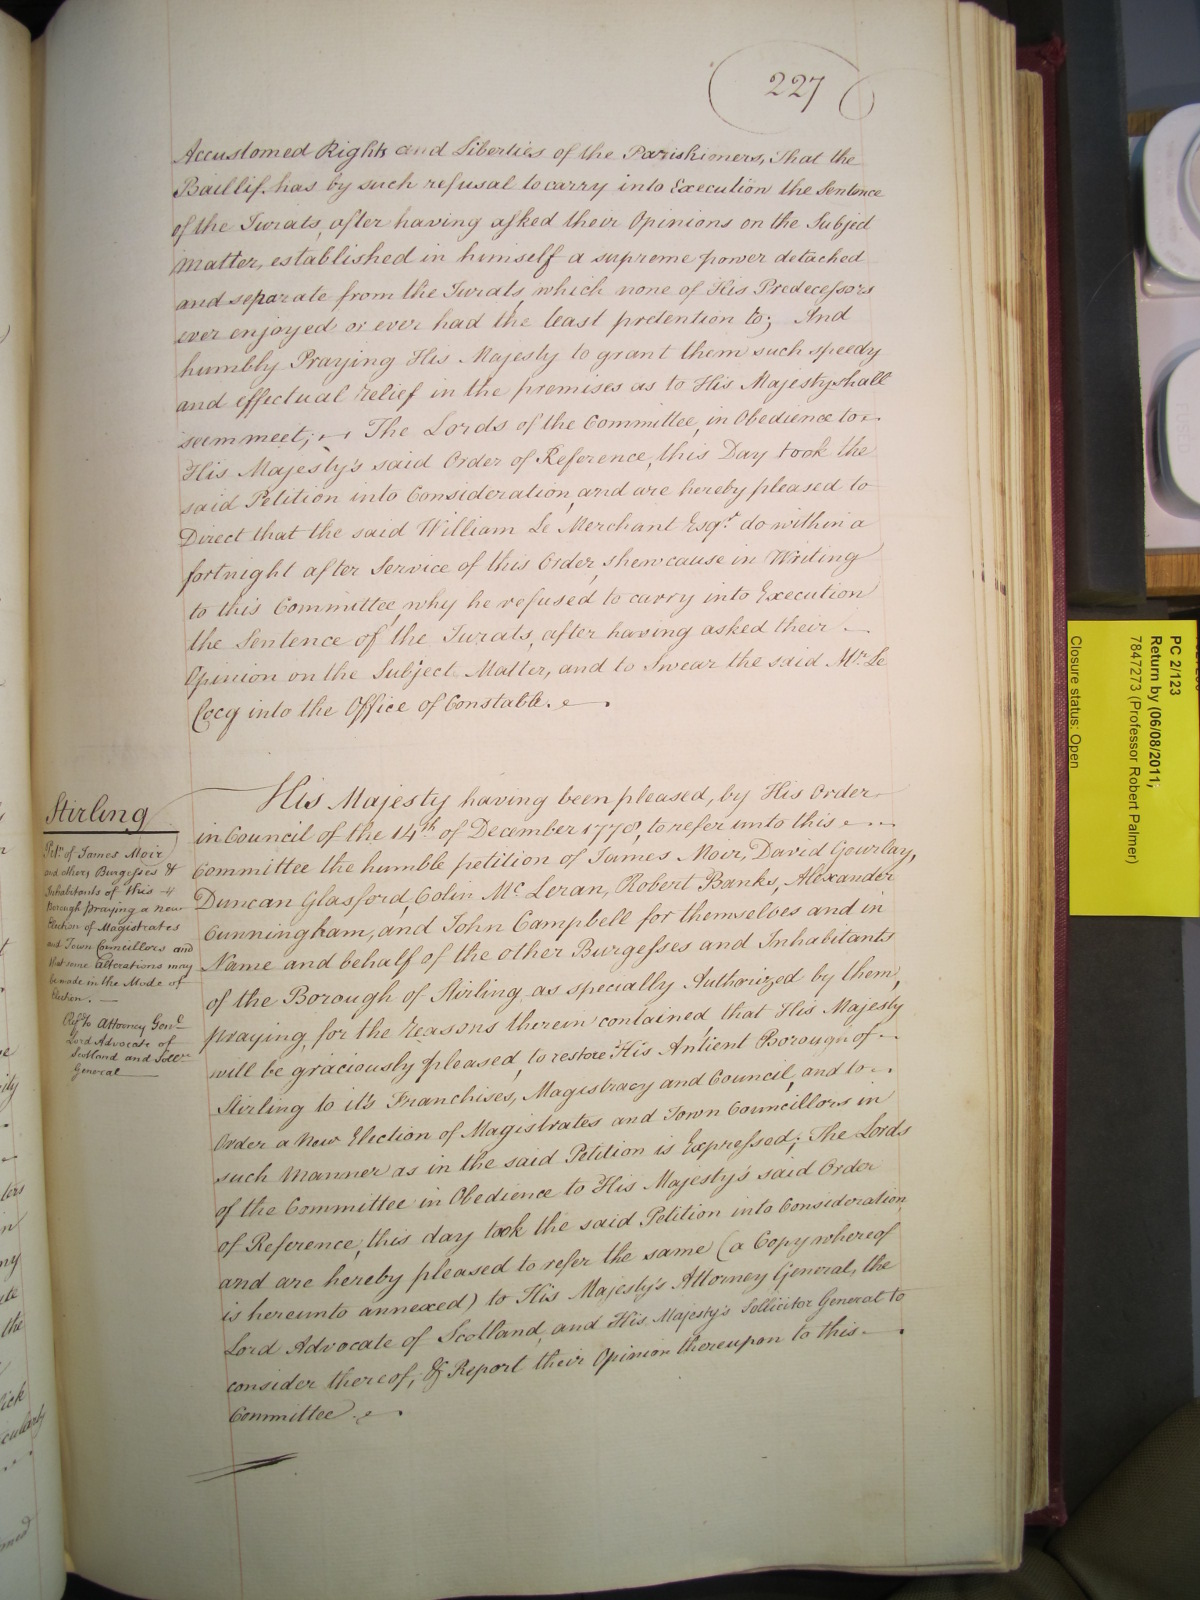 227
Accustomed Rights and Liberties of the Parishioners, That the
Baillif has by such refusal to carry into Execution the Sentence
of the Jurats, after having asked their Opinions on the Subject
Matter, established in himself a supreme power detached
and separate from the Jurats, which none of His Predecessors
ever enjoyed or ever had the least pretention to; And
humbly Praying His Majesty to grant them such speedy
and effectual relief in the premises as to His Majesty shall
seem meet; The Lords of the Committee, in Obedience to
His Majesty's said Order of Reference, this Day took the
said Petition into Consideration, and are hereby pleased to
Direct that the said William Le Merchant Esqr. do within a
fortnight after Service of this Order, shew cause in Writing
to this Committee, why he refused to carry into Execution
the Sentence of the Jurats, after having asked their
Opinion on the Subject Matter, and to Swear the said Mr. Le
Cocq into the Office of Constable.
Stirling
Petn. of James Moir
and others Burgesses &
Inhabitants of this
Borough praying a new
Election of Magistrates
and Town Councillors and
that some Alterations may
be made in the Mode of
Election.
Refd. to Attorney Genl.
Lord Advocate of
Scotland and Sollr.
General
His Majesty having been pleased, by His Order
in Council of the 14th of December 1778, to refer unto this
Committee the humble petition of James Moir, David Gourlay,
Duncan Glasford, Colin Mc Leran, Robert Banks, Alexander
Cunningham, and John Campbell for themselves and in
Name and behalf of the other Burgesses and Inhabitants
of the Borough of Stirling as specially Authorized by them,
praying, for the reasons therein contained that His Majesty
will be graciously pleased, to restore His Antient Borough of
Stirling to it's Franchises, Magistracy and Council, and to
Order a New Election of Magistrates and Town Councillors in
such Manner as in the said Petition is Expressed; The Lords
of the Committee in Obedience to His Majesty's said Order
of Reference, this day took the said Petition into Consideration,
and are hereby pleased to refer the same (a Copy whereof
is hereunto annexed) to His Majesty's Attorney General, the
Lord Advocate of Scotland, and His Majesty's Sollicitor General to
consider thereof, & Report their Opinion thereupon to this
Committee
PC 2/123
Return by (06/08/2011;
7847273 (Professor Robert Palmer)
Closure status: Open